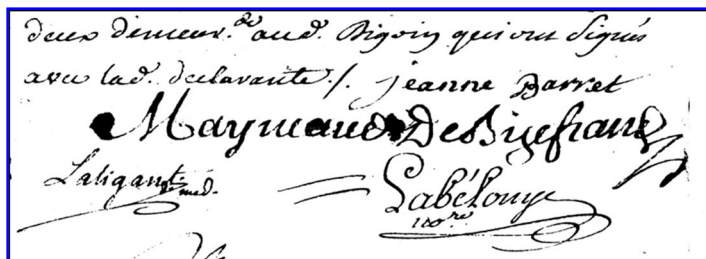 deux demeur.ᵗ aud. Digoin qui ont signés
avec lad. declarante ./. jeanne Barret
Maynaud De Bizefranc
Laligant med.
Labélonye
no.ʳᵉ